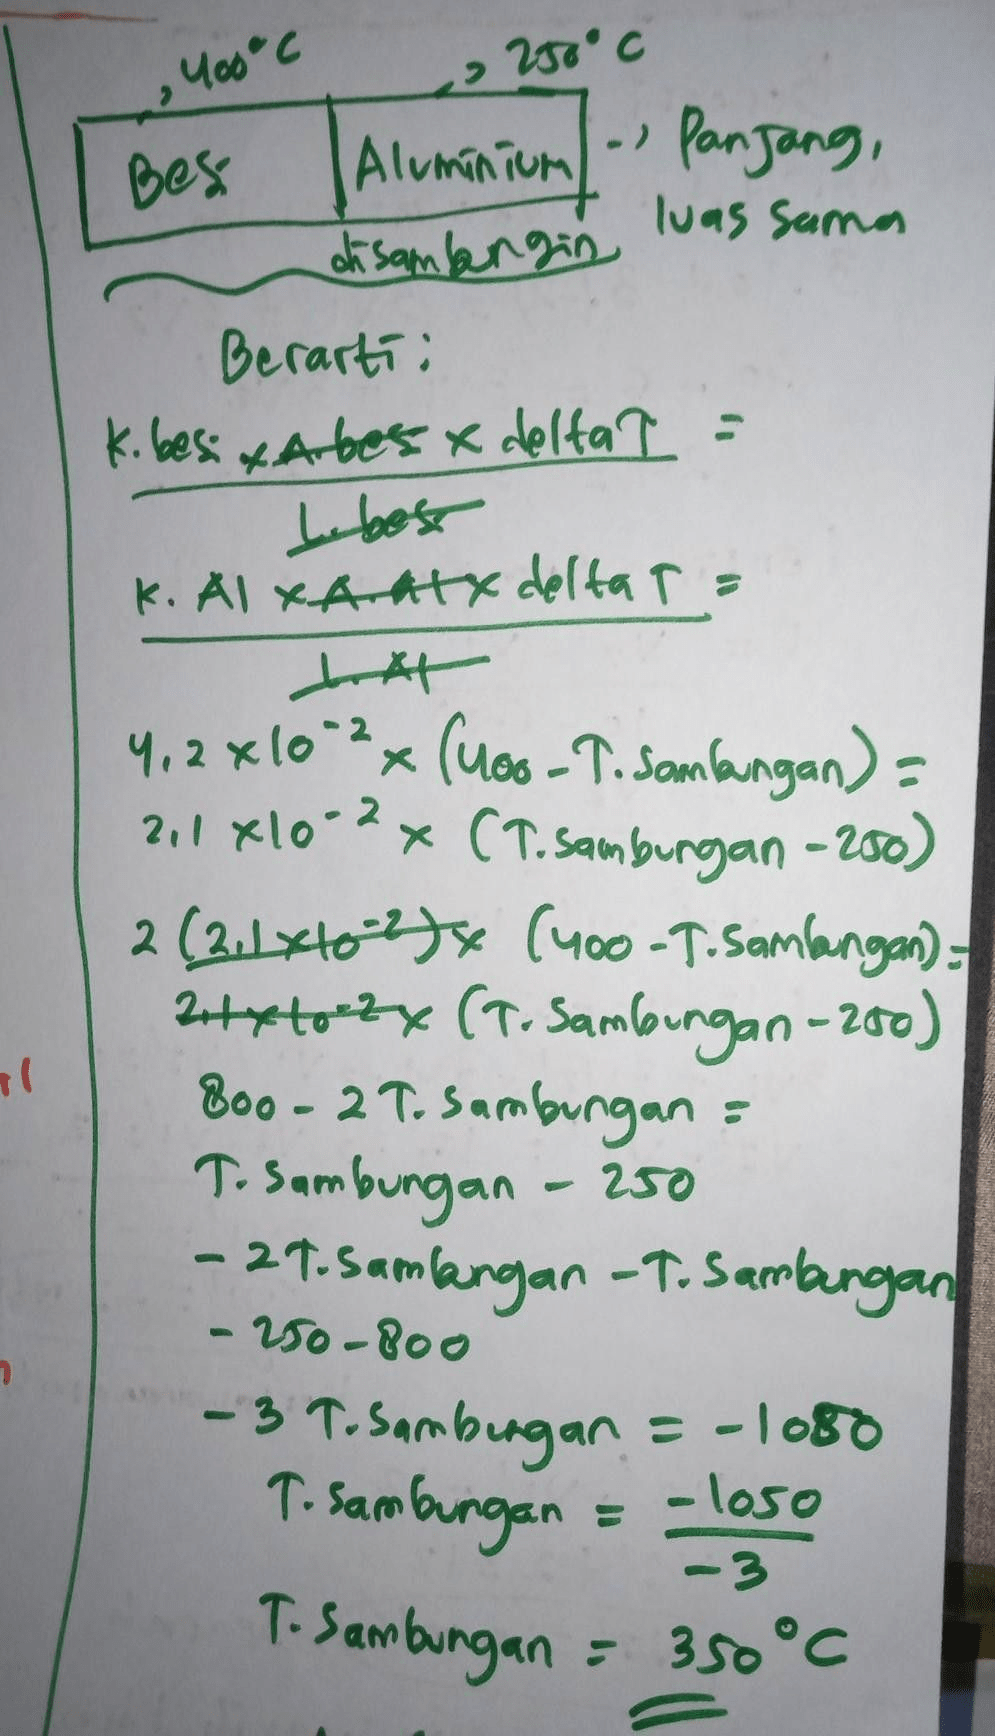 400°C
250°C
Besi
Aluminium
Panjang,
luas sama
disambungin
Berarti:
K. besi x A. besi x delta T =
L. besi
K. Al x A. Al x delta T =
L. Al
4,2 x 10⁻² x (400 - T. Sambungan) =
2,1 x 10⁻² x (T. Sambungan - 250)
2 (2,1 x 10⁻²) x (400 - T. Sambungan) =
2,1 x 10⁻² x (T. Sambungan - 250)
800 - 2 T. Sambungan =
T. Sambungan - 250
- 2 T. Sambungan - T. Sambungan
- 250 - 800
- 3 T. Sambungan = - 1050
T. Sambungan = -1050
-3
T. Sambungan = 350°C